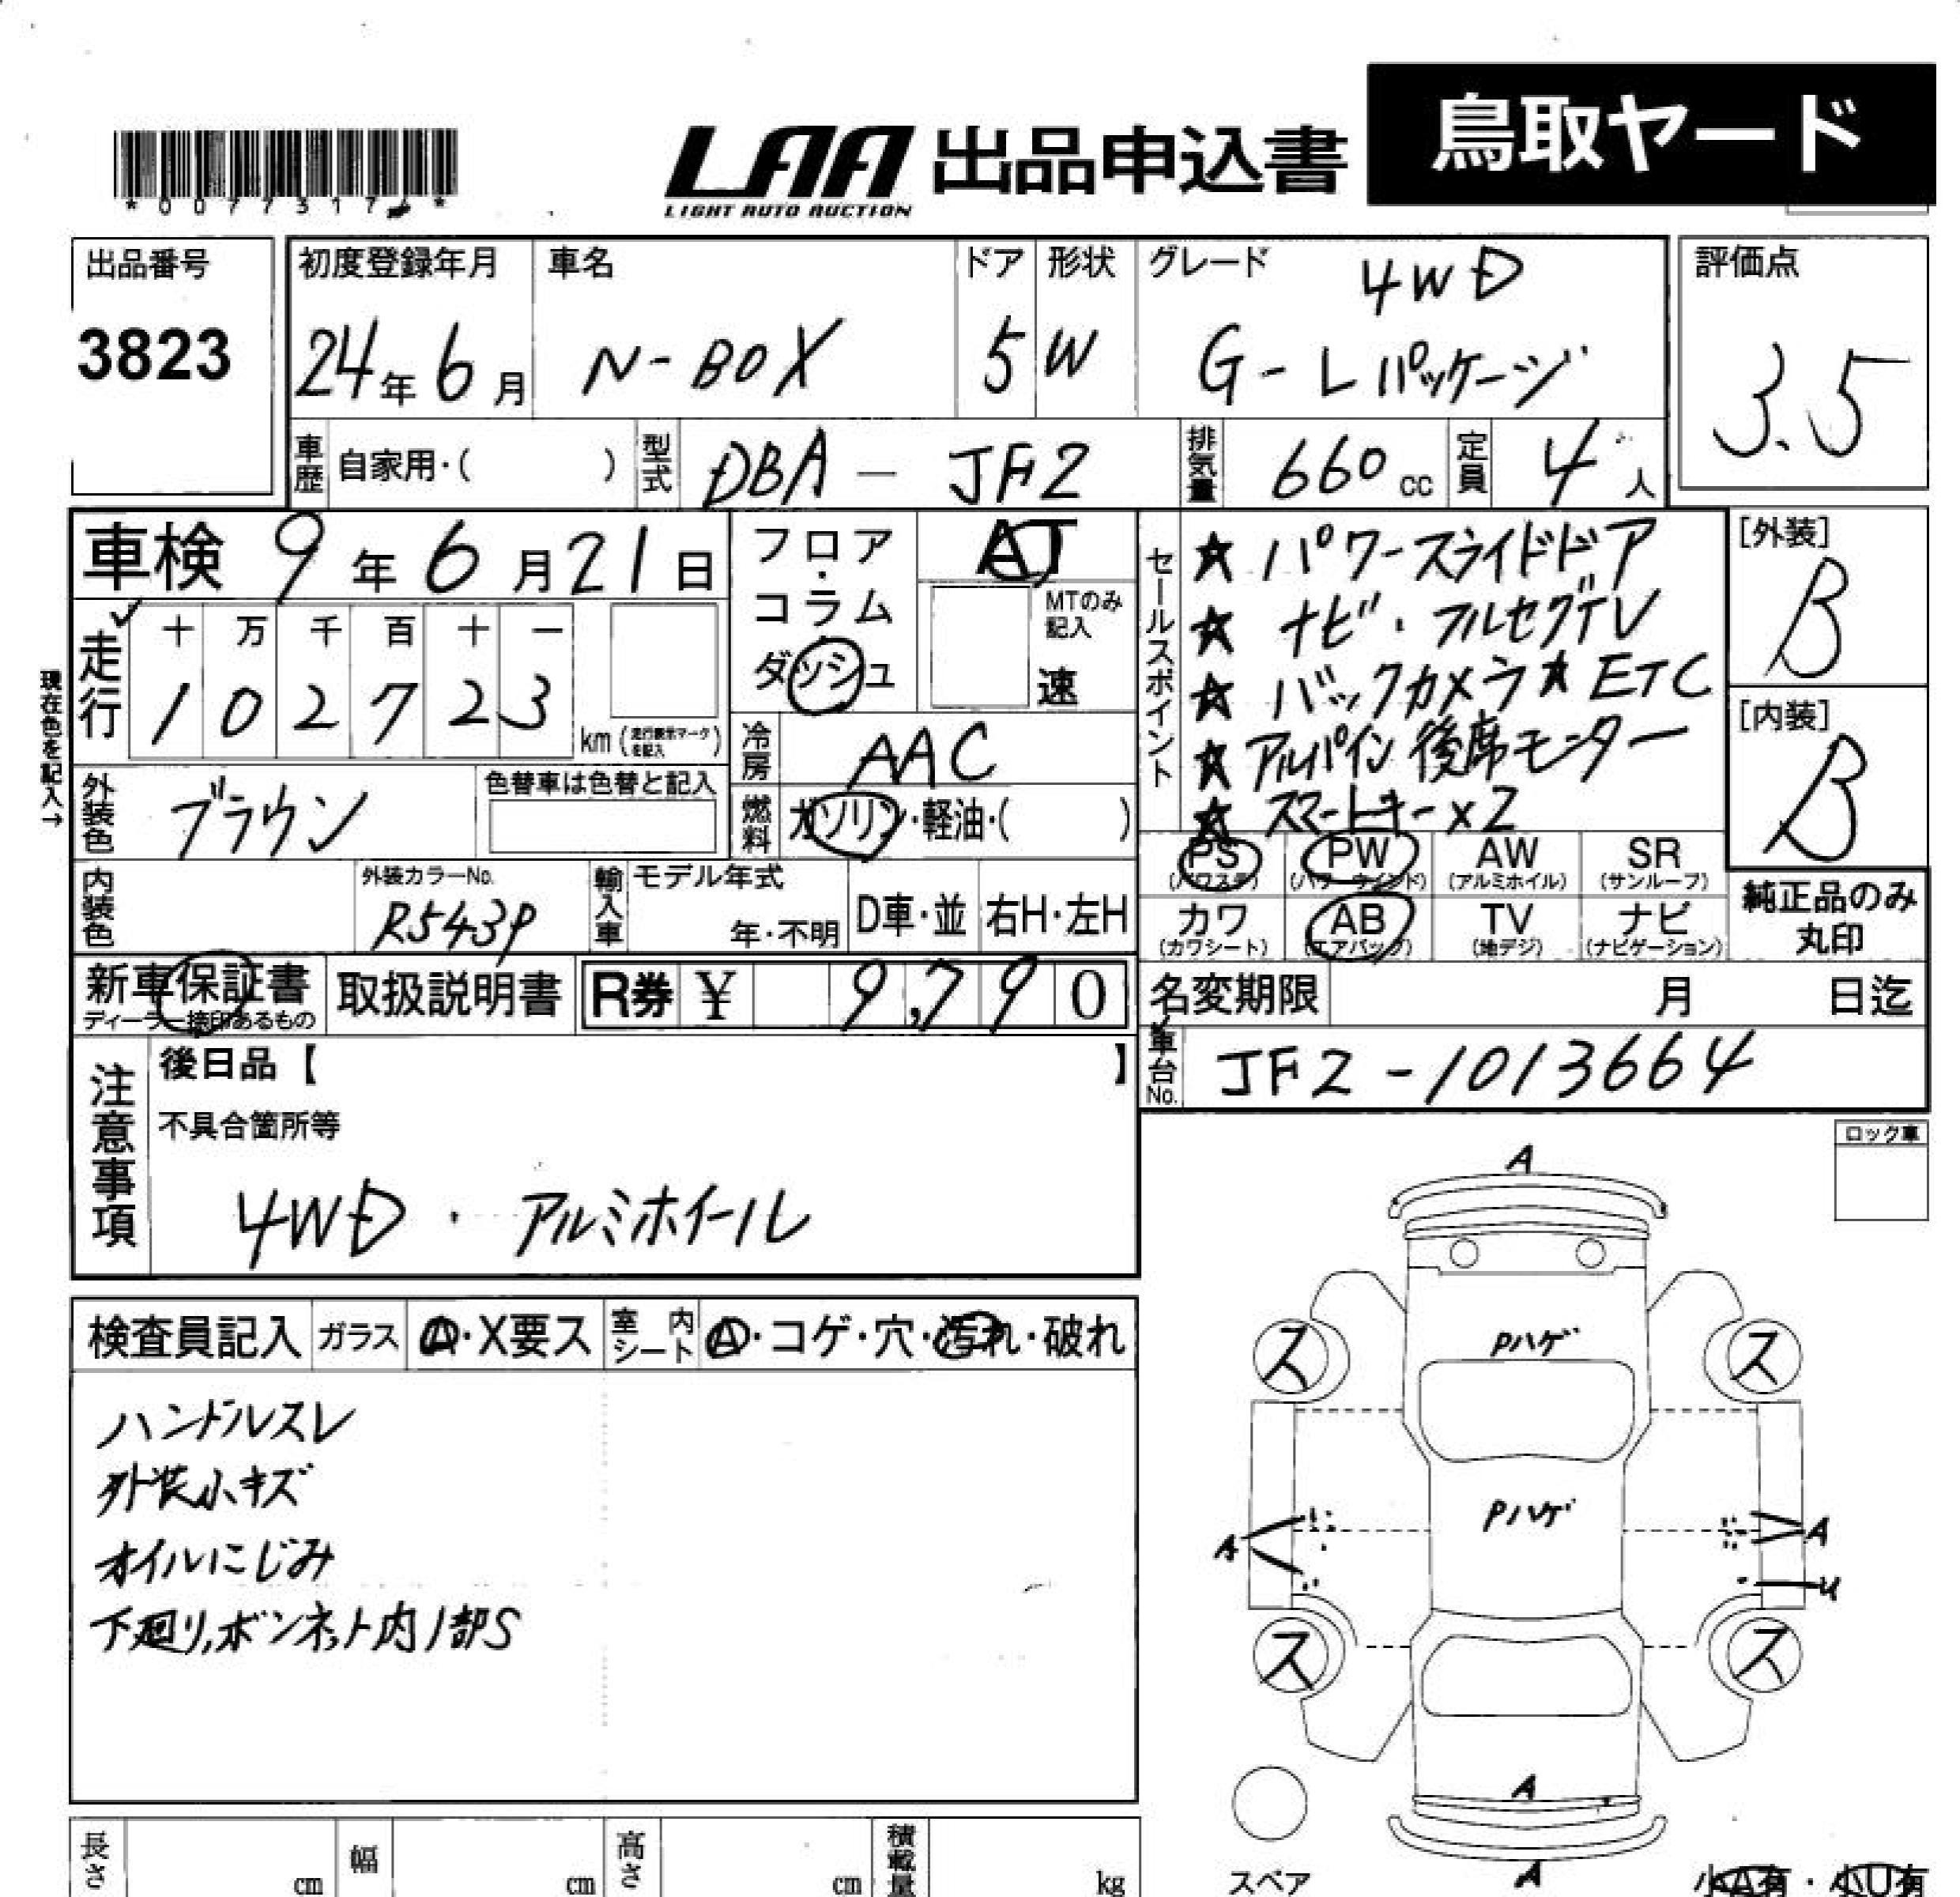 鳥取ヤード
LAA 出品申込書
LIGHT AUTO AUCTION
出品番号
3823
初度登録年月
24年6月
車名
N-BOX
ドア
5
形状
W
グレード
4WD
G-Lパッケージ
評価点
3.5
車歴
自家用・( )
型式
DBA-JF2
排気量
660cc
定員
4人
車検 9年6月21日
現在色を記入→
走行
十 万 千 百 十 一
1 0 2 7 2 3
km(走行表示マークを記入)
フロア・
コラム
ダッシュ
AT
MTのみ記入
速
冷房
AAC
燃料
ガソリン・軽油・( )
セールスポイント
★パワースライドドア
★ナビ・フルセグTV
★バックカメラ★ETC
★アルパイン後席モニター
★スマートキー×2
[外装]
B
[内装]
B
外装色
ブラウン
色替車は色替と記入
内装色
外装カラーNo.
R543P
輸入車
モデル年式
年・不明
D車・並
右H・左H
PS
(パワステ)
PW
(パワーウインド)
AW
(アルミホイル)
SR
(サンルーフ)
カワ
(カワシート)
AB
(エアバッグ)
TV
(地デジ)
ナビ
(ナビゲーション)
純正品のみ
丸印
新車保証書
ディーラー捺印あるもの
取扱説明書
R券 ¥ 9,790
名変期限 月 日迄
車台No.
JF2-1013664
注意事項
後日品【 】
不具合箇所等
4WD・アルミホイール
ロック車
検査員記入
ガラス
A・X要ス
室内シート
A・コゲ・穴・汚れ・破れ
ハンドルスレ
外装小キズ
オイルにじみ
下廻り,ボンネット内1部S
A
Pハゲ
ス ス
Pハゲ
A A
U
ス ス
A
A
スペア
小A有・小U有
長さ cm
幅 cm
高さ cm
積載量 kg